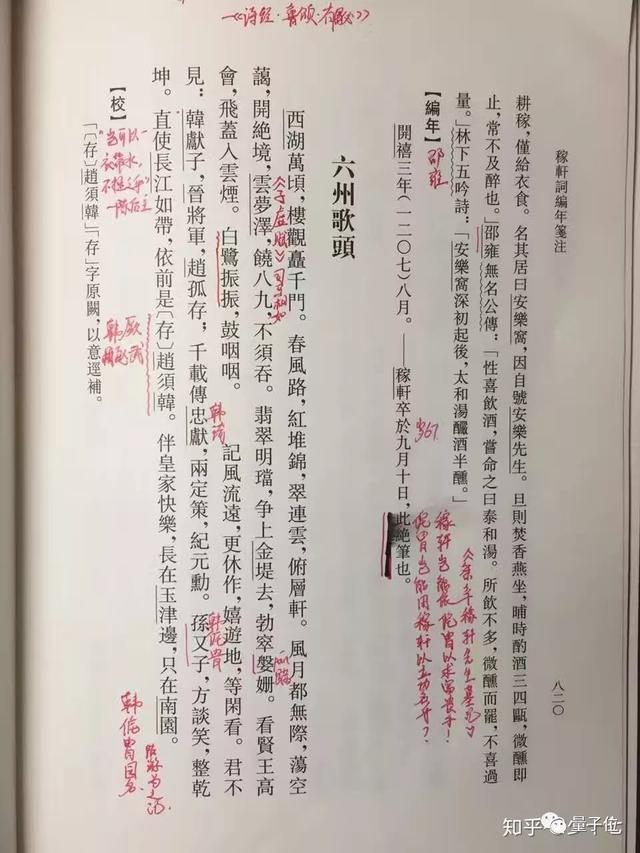 《诗经·鲁颂·有駜》
稼軒詞編年箋注
八二〇
耕稼，僅給衣食。名其居曰安樂窩，因自號安樂先生。旦則焚香燕坐，晡時酌酒三四甌，微醺即
止，常不及醉也。」邵雍無名公傳：「性喜飲酒，嘗命之曰泰和湯。所飲不多，微醺而罷，不喜過
量。」林下五吟詩：「安樂窩深初起後，太和湯釅酒半醺。」
邵雍
【編年】
開禧三年（一二〇七）八月。——稼軒卒於九月十日，此絕筆也。
《祭辛稼軒先生墓記》
稼軒豈能依侂胄以求富貴乎！
侂胄豈能用稼軒以立功名乎？
六州歌頭
西湖萬頃，樓觀矗千門。春風路，紅堆錦，翠連雲，俯層軒。風月都無際，蕩空
藹，開絕境，雲夢澤，饒八九，不須吞。翡翠明璫，爭上金堤去，勃窣媻姍。看賢王高
會，飛蓋入雲煙。白鷺振振，鼓咽咽。　記風流遠，更休作，嬉遊地，等閑看。君不
見：韓獻子，晉將軍，趙孤存；千載傳忠獻，兩定策，紀元勳。孫又子，方談笑，整乾
坤。直使長江如帶，依前是〔存〕趙須韓。伴皇家快樂，長在玉津邊，只在南園。
《子虛賦》司马相如
韩琦
韩侂胄
韩厥
韩侂胄园名
【校】
「〔存〕趙須韓」「存」字原闕，以意逕補。
知乎 量子位